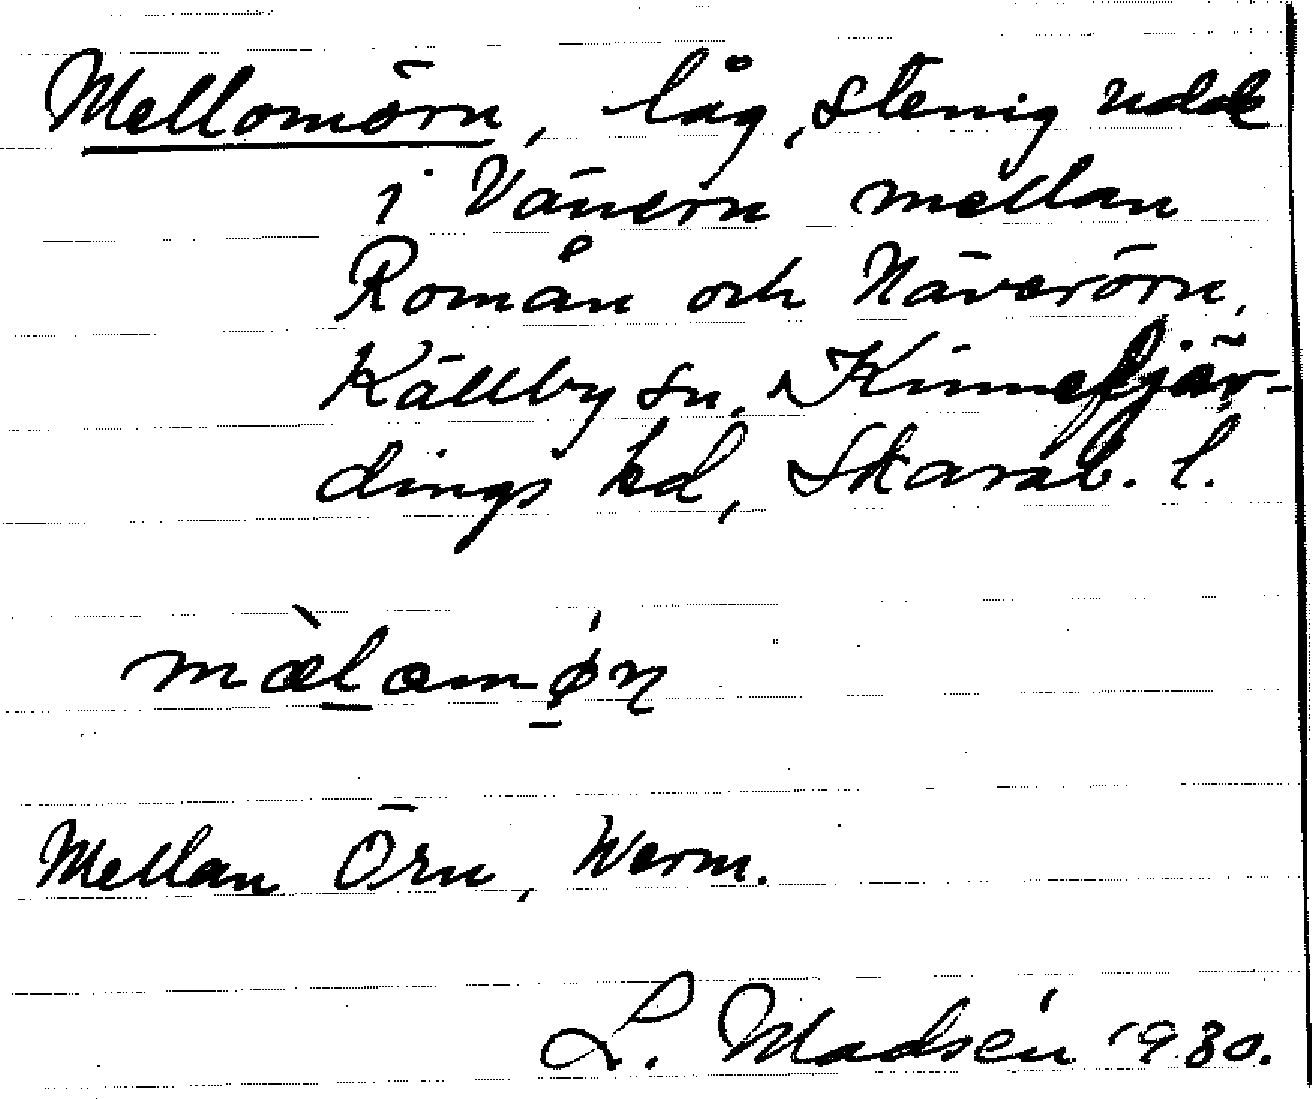 Mellomörn, låg, stenig udde
i Vänern mellan
Romån och Näverörn,
Källby sn, Kinnefjär-
dings hd, Skarab. l.
mæ̀lamǿn
Mellan Örn, Werm.
L. Madsén 1930.